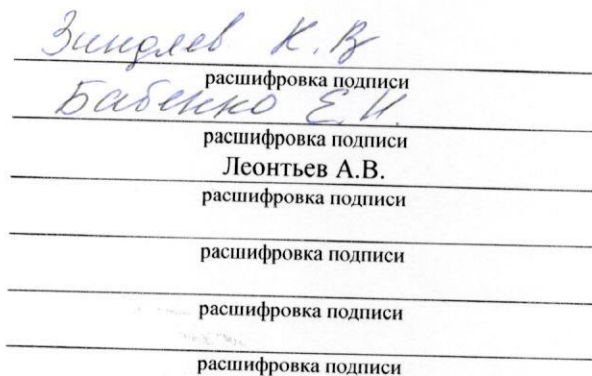 Зиндяев К.В
расшифровка подписи
Бабенко Е.И.
расшифровка подписи
Леонтьев А.В.
расшифровка подписи
расшифровка подписи
расшифровка подписи
расшифровка подписи